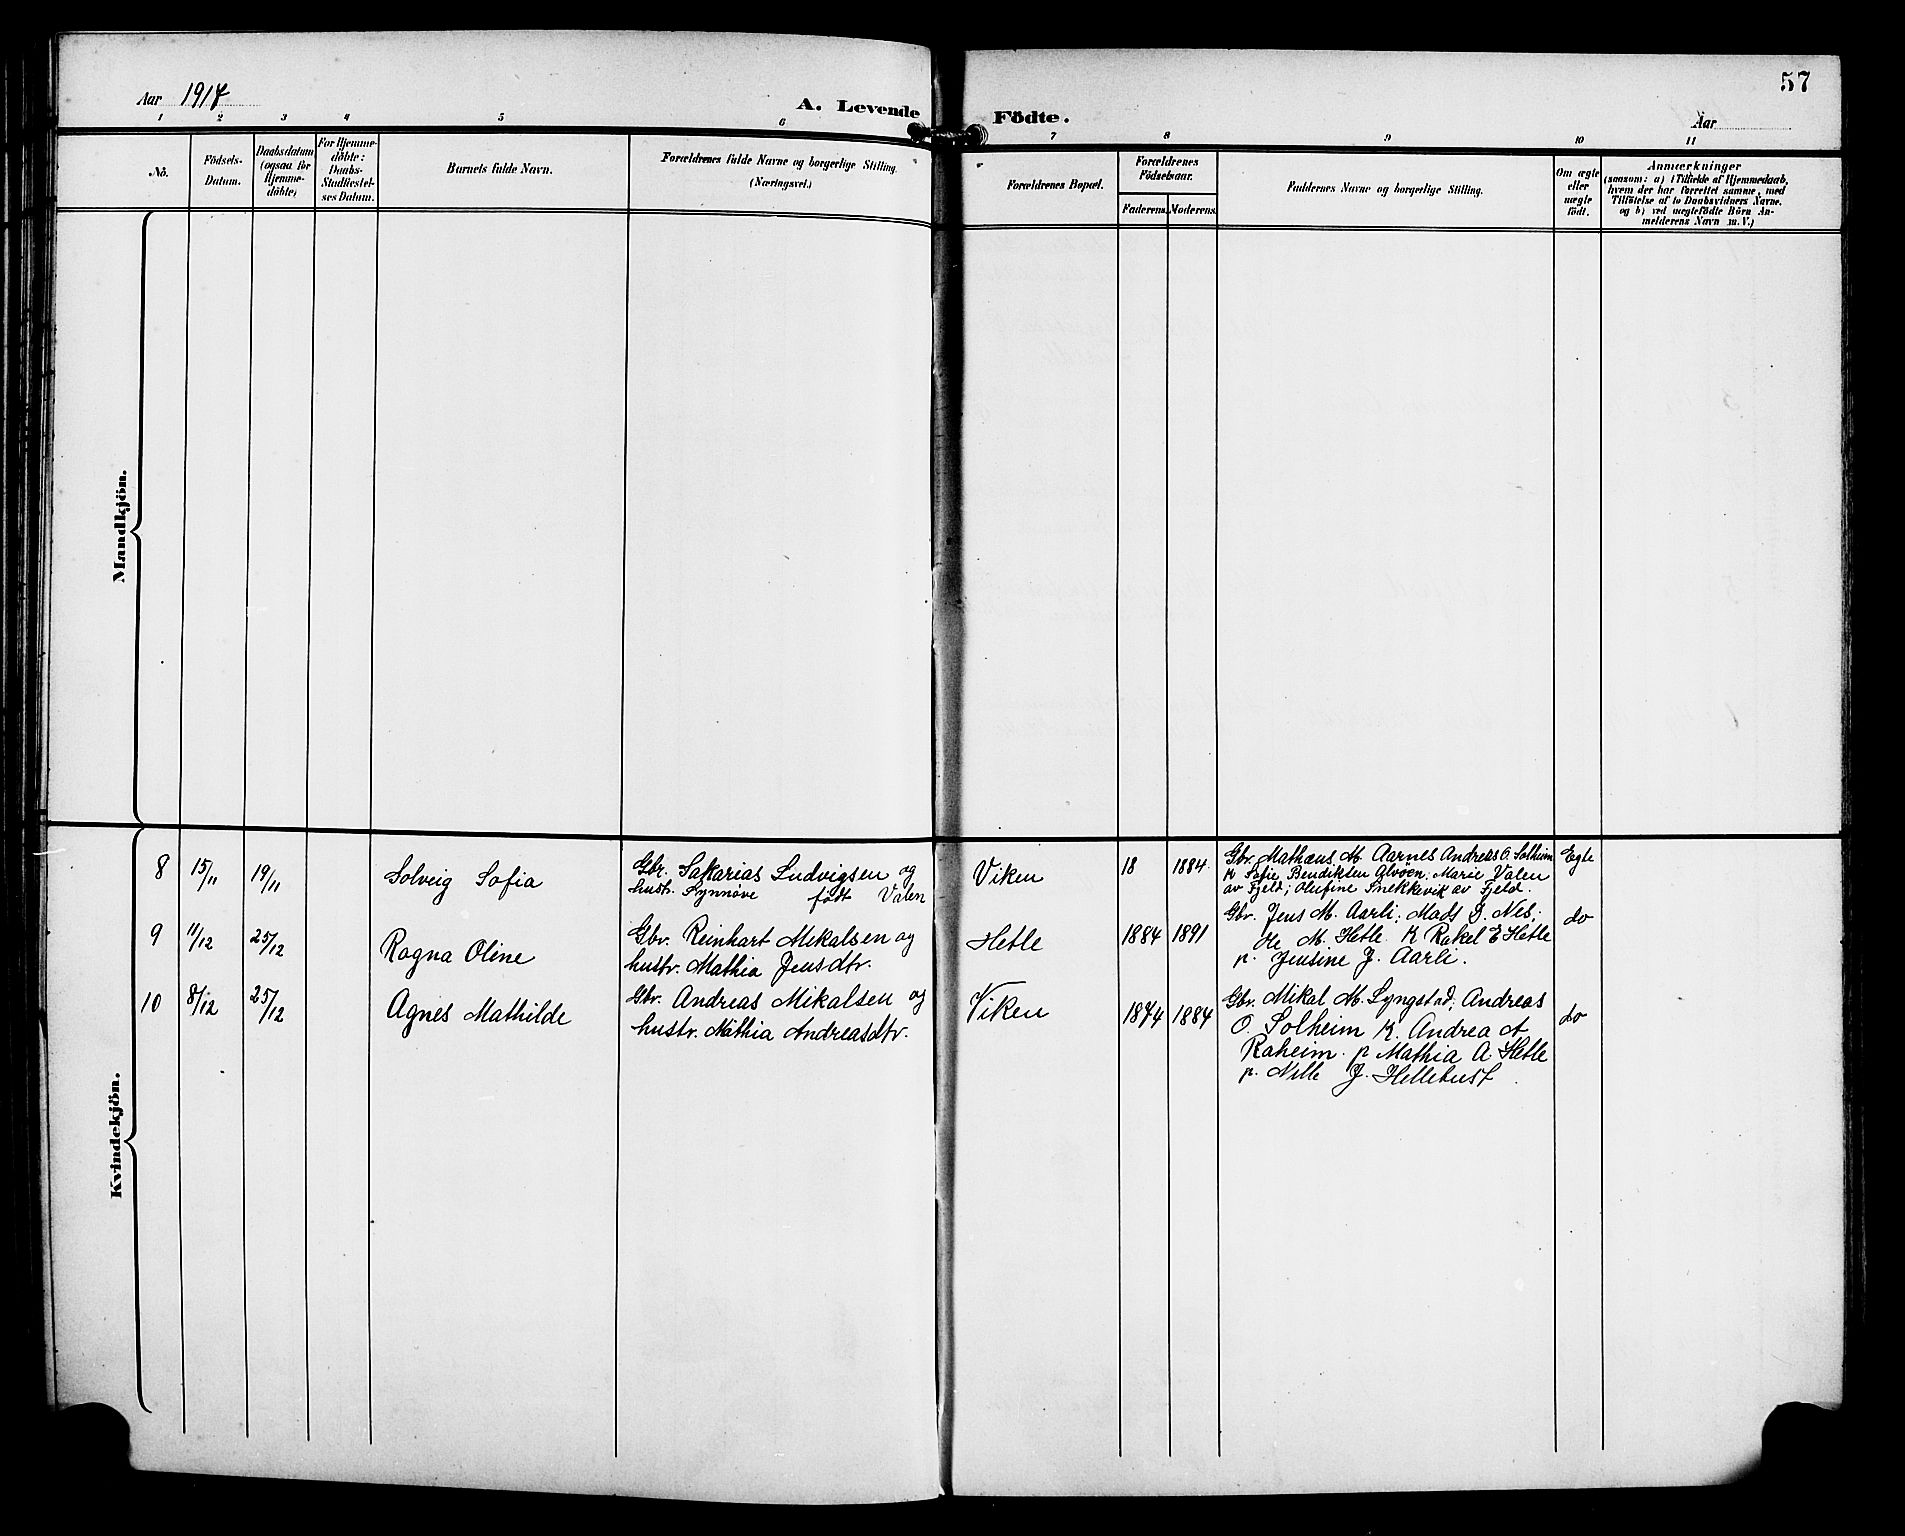 57
Aar 1917
A. Levende Födte.
Aar
1 2 3 4 5 6 7 8 9 10 11
No.
Födsels-
Datum.
Daabsdatum
(ogsaa for
Hjemme-
döbte)
For Hjemme-
döbte:
Daabs-
Stadfæstel-
ses Datum.
Barnets fulde Navn.
Forældrenes fulde Navne og borgerlige Stilling.
(Næringsvei.)
Forældrenes Bopæl.
Forældrenes
Födselsaar.
Faderens. Moderens.
Faddernes Navne og borgerlige Stilling.
Om ægte
eller
uægte
födt.
Anmærkninger
(saasom: a) i Tilfælde af Hjemmedaab,
hvem der har forrettet samme, med
Tilföielse af to Daabsvidners Navne,
og b) ved uægtefödte Börn An-
melderens Navn m. V.)
Mandkjön.
Kvindekjön.
8 15/11 19/11 Solveig Sofia
Gbr. Sakarias Ludvigsen og
hustr. Synnöve født Valen
Viken 18 1884
Gbr. Mathæus M. Aarnes Andreas O. Solheim
K Sofie Bendiksen Alvöen. Marie Valen
av Fjeld; Olufine Snekkevik av Fjeld.
Egte
9 11/12 25/12 Ragna Oline
Gbr. Reinhart Mikalsen og
hustr. Mathia Jensdtr.
Hetle 1884 1891
Gbr. Jens M. Aarli; Mads D. Nes;
Ole M. Hetle. K Rakel E Hetle
p. Jensine J. Aarli.
do
10 8/12 25/12 Agnes Mathilde
Gbr. Andreas Mikalsen og
hustr. Mathia Andreasdtr.
Viken 1874 1884
Gbr. Mikal M. Lyngstad; Andreas
O. Solheim K. Andrea A
Raheim. p Mathia A. Hetle
p. Nille J. Hellebust.
do